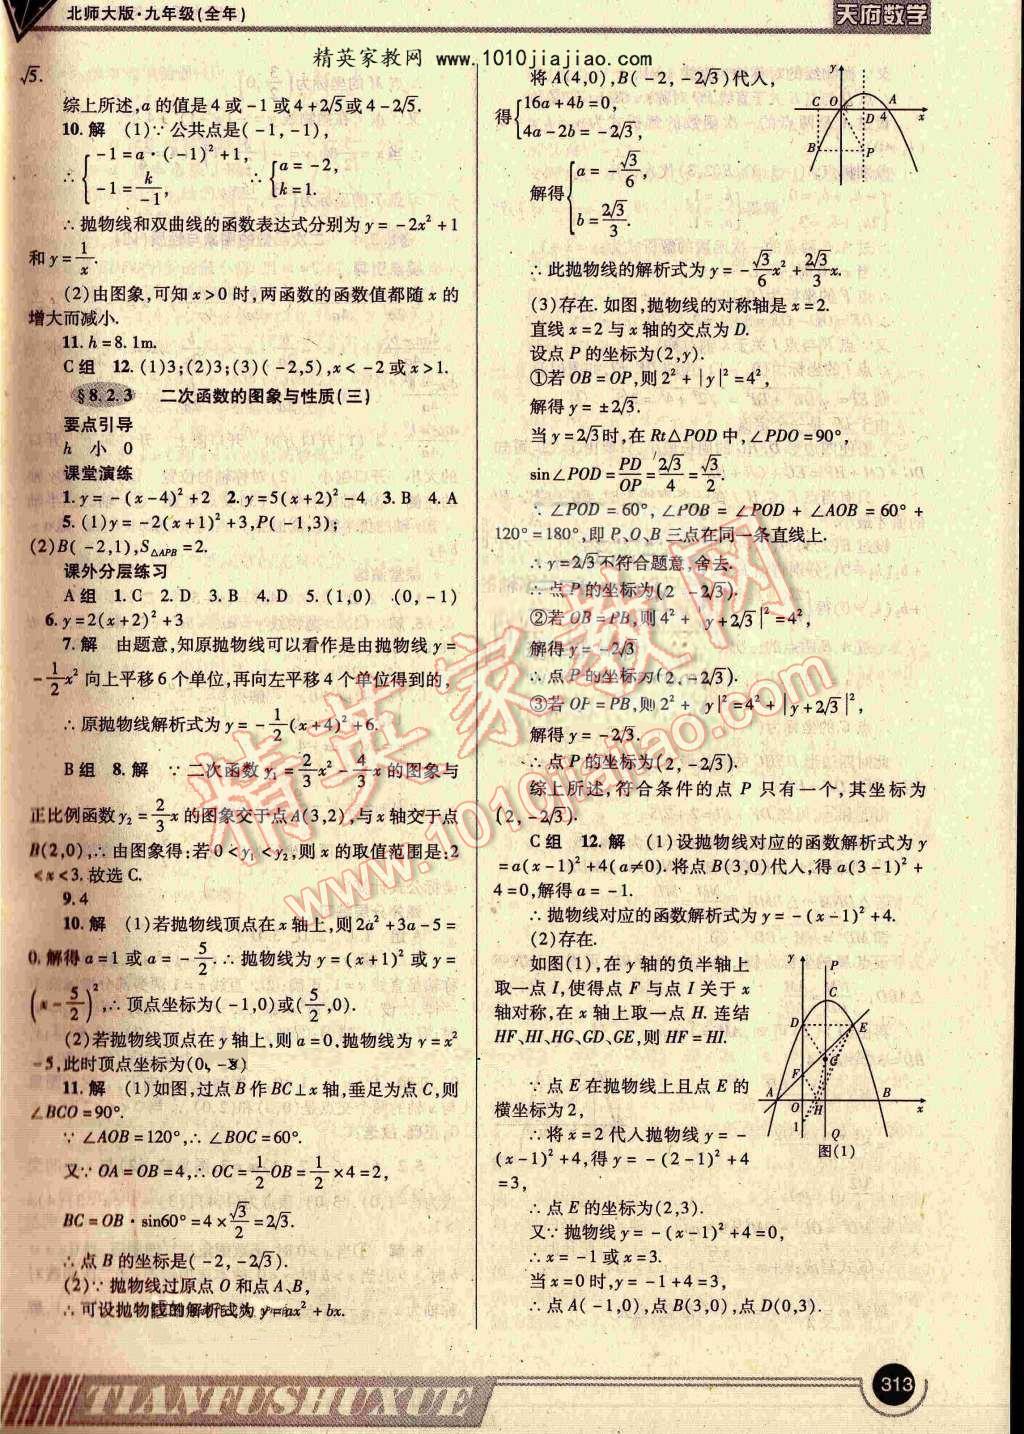 北师大版·九年级(全年)
天府数学
精英家教网 www.1010jiajiao.com
√5.
综上所述,a的值是4或-1或4+2√5或4-2√5.
10.解 (1)∵公共点是(-1,-1),
∴{-1=a·(-1)²+1, -1=k/-1, ∴{a=-2, k=1.
∴抛物线和双曲线的函数表达式分别为y=-2x²+1
和y=1/x.
(2)由图象,可知x>0时,两函数的函数值都随x的
增大而减小.
11.h=8.1m.
C组 12.(1)3;(2)3;(3)(-2,5),x<-2或x>1.
§8.2.3 二次函数的图象与性质(三)
要点引导
h 小 0
课堂演练
1.y=-(x-4)²+2 2.y=5(x+2)²-4 3.B 4.A
5.(1)y=-2(x+1)²+3,P(-1,3);
(2)B(-2,1),S△APB=2.
课外分层练习
A组 1.C 2.D 3.B 4.D 5.(1,0) (0,-1)
6.y=2(x+2)²+3
7.解 由题意,知原抛物线可以看作是由抛物线y=
-1/2x²向上平移6个单位,再向左平移4个单位得到的,
∴原抛物线解析式为y=-1/2(x+4)²+6.
B组 8.解 ∵二次函数y₁=2/3x²-4/3x的图象与
正比例函数y₂=2/3x的图象交于点A(3,2),与x轴交于点
B(2,0),∴由图象得:若0<y₁<y₂,则x的取值范围是:2
<x<3.故选C.
9.4
10.解 (1)若抛物线顶点在x轴上,则2a²+3a-5=
0.解得a=1或a=-5/2.∴抛物线为y=(x+1)²或y=
(x-5/2)²,∴顶点坐标为(-1,0)或(5/2,0).
(2)若抛物线顶点在y轴上,则a=0,抛物线为y=x²
-5,此时顶点坐标为(0,-5)
11.解 (1)如图,过点B作BC⊥x轴,垂足为点C,则
∠BCO=90°.
∵∠AOB=120°,∴∠BOC=60°.
又∵OA=OB=4,∴OC=1/2OB=1/2×4=2,
BC=OB·sin60°=4×√3/2=2√3.
∴点B的坐标是(-2,-2√3).
(2)∵抛物线过原点O和点A、B,
∴可设抛物线的解析式为y=ax²+bx.
将A(4,0),B(-2,-2√3)代入,
得{16a+4b=0, 4a-2b=-2√3,
解得{a=-√3/6, b=2√3/3.
∴此抛物线的解析式为y=-√3/6x²+2√3/3x.
y C O A D 4 x B P
(3)存在.如图,抛物线的对称轴是x=2.
直线x=2与x轴的交点为D.
设点P的坐标为(2,y).
①若OB=OP,则2²+|y|²=4²,
解得y=±2√3.
当y=2√3时,在Rt△POD中,∠PDO=90°,
sin∠POD=PD/OP=2√3/4=√3/2.
∴∠POD=60°,∠POB=∠POD+∠AOB=60°+
120°=180°,即P、O、B三点在同一条直线上.
∴y=2√3不符合题意,舍去.
∴点P的坐标为(2 -2√3).
②若OB=PB,则4²+ y+2√3|²=4²,
解得y=-2√3
∴点P的坐标为(2,-2√3).
③若OP=PB,则2²+ y|²=4²+|y+2√3|²,
解得y=-2√3.
∴点P的坐标为(2,-2√3).
综上所述,符合条件的点P只有一个,其坐标为
(2,-2√3).
C组 12.解 (1)设抛物线对应的函数解析式为y
=a(x-1)²+4(a≠0).将点B(3,0)代入,得a(3-1)²+
4=0,解得a=-1.
∴抛物线对应的函数解析式为y=-(x-1)²+4.
(2)存在.
如图(1),在y轴的负半轴上
取一点I,使得点F与点I关于x
轴对称,在x轴上取一点H.连结
HF,HI,HG,GD,GE,则HF=HI.
∵点E在抛物线上且点E的
横坐标为2,
∴将x=2代入抛物线y=-
(x-1)²+4,得y=-(2-1)²+4
=3,
∴点E的坐标为(2,3).
又∵抛物线y=-(x-1)²+4,
∴x=-1或x=3.
当x=0时,y=-1+4=3,
∴点A(-1,0),点B(3,0),点D(0,3).
y P C D E F G A O H B x I Q
图(1)
TIANFUSHUXUE
313